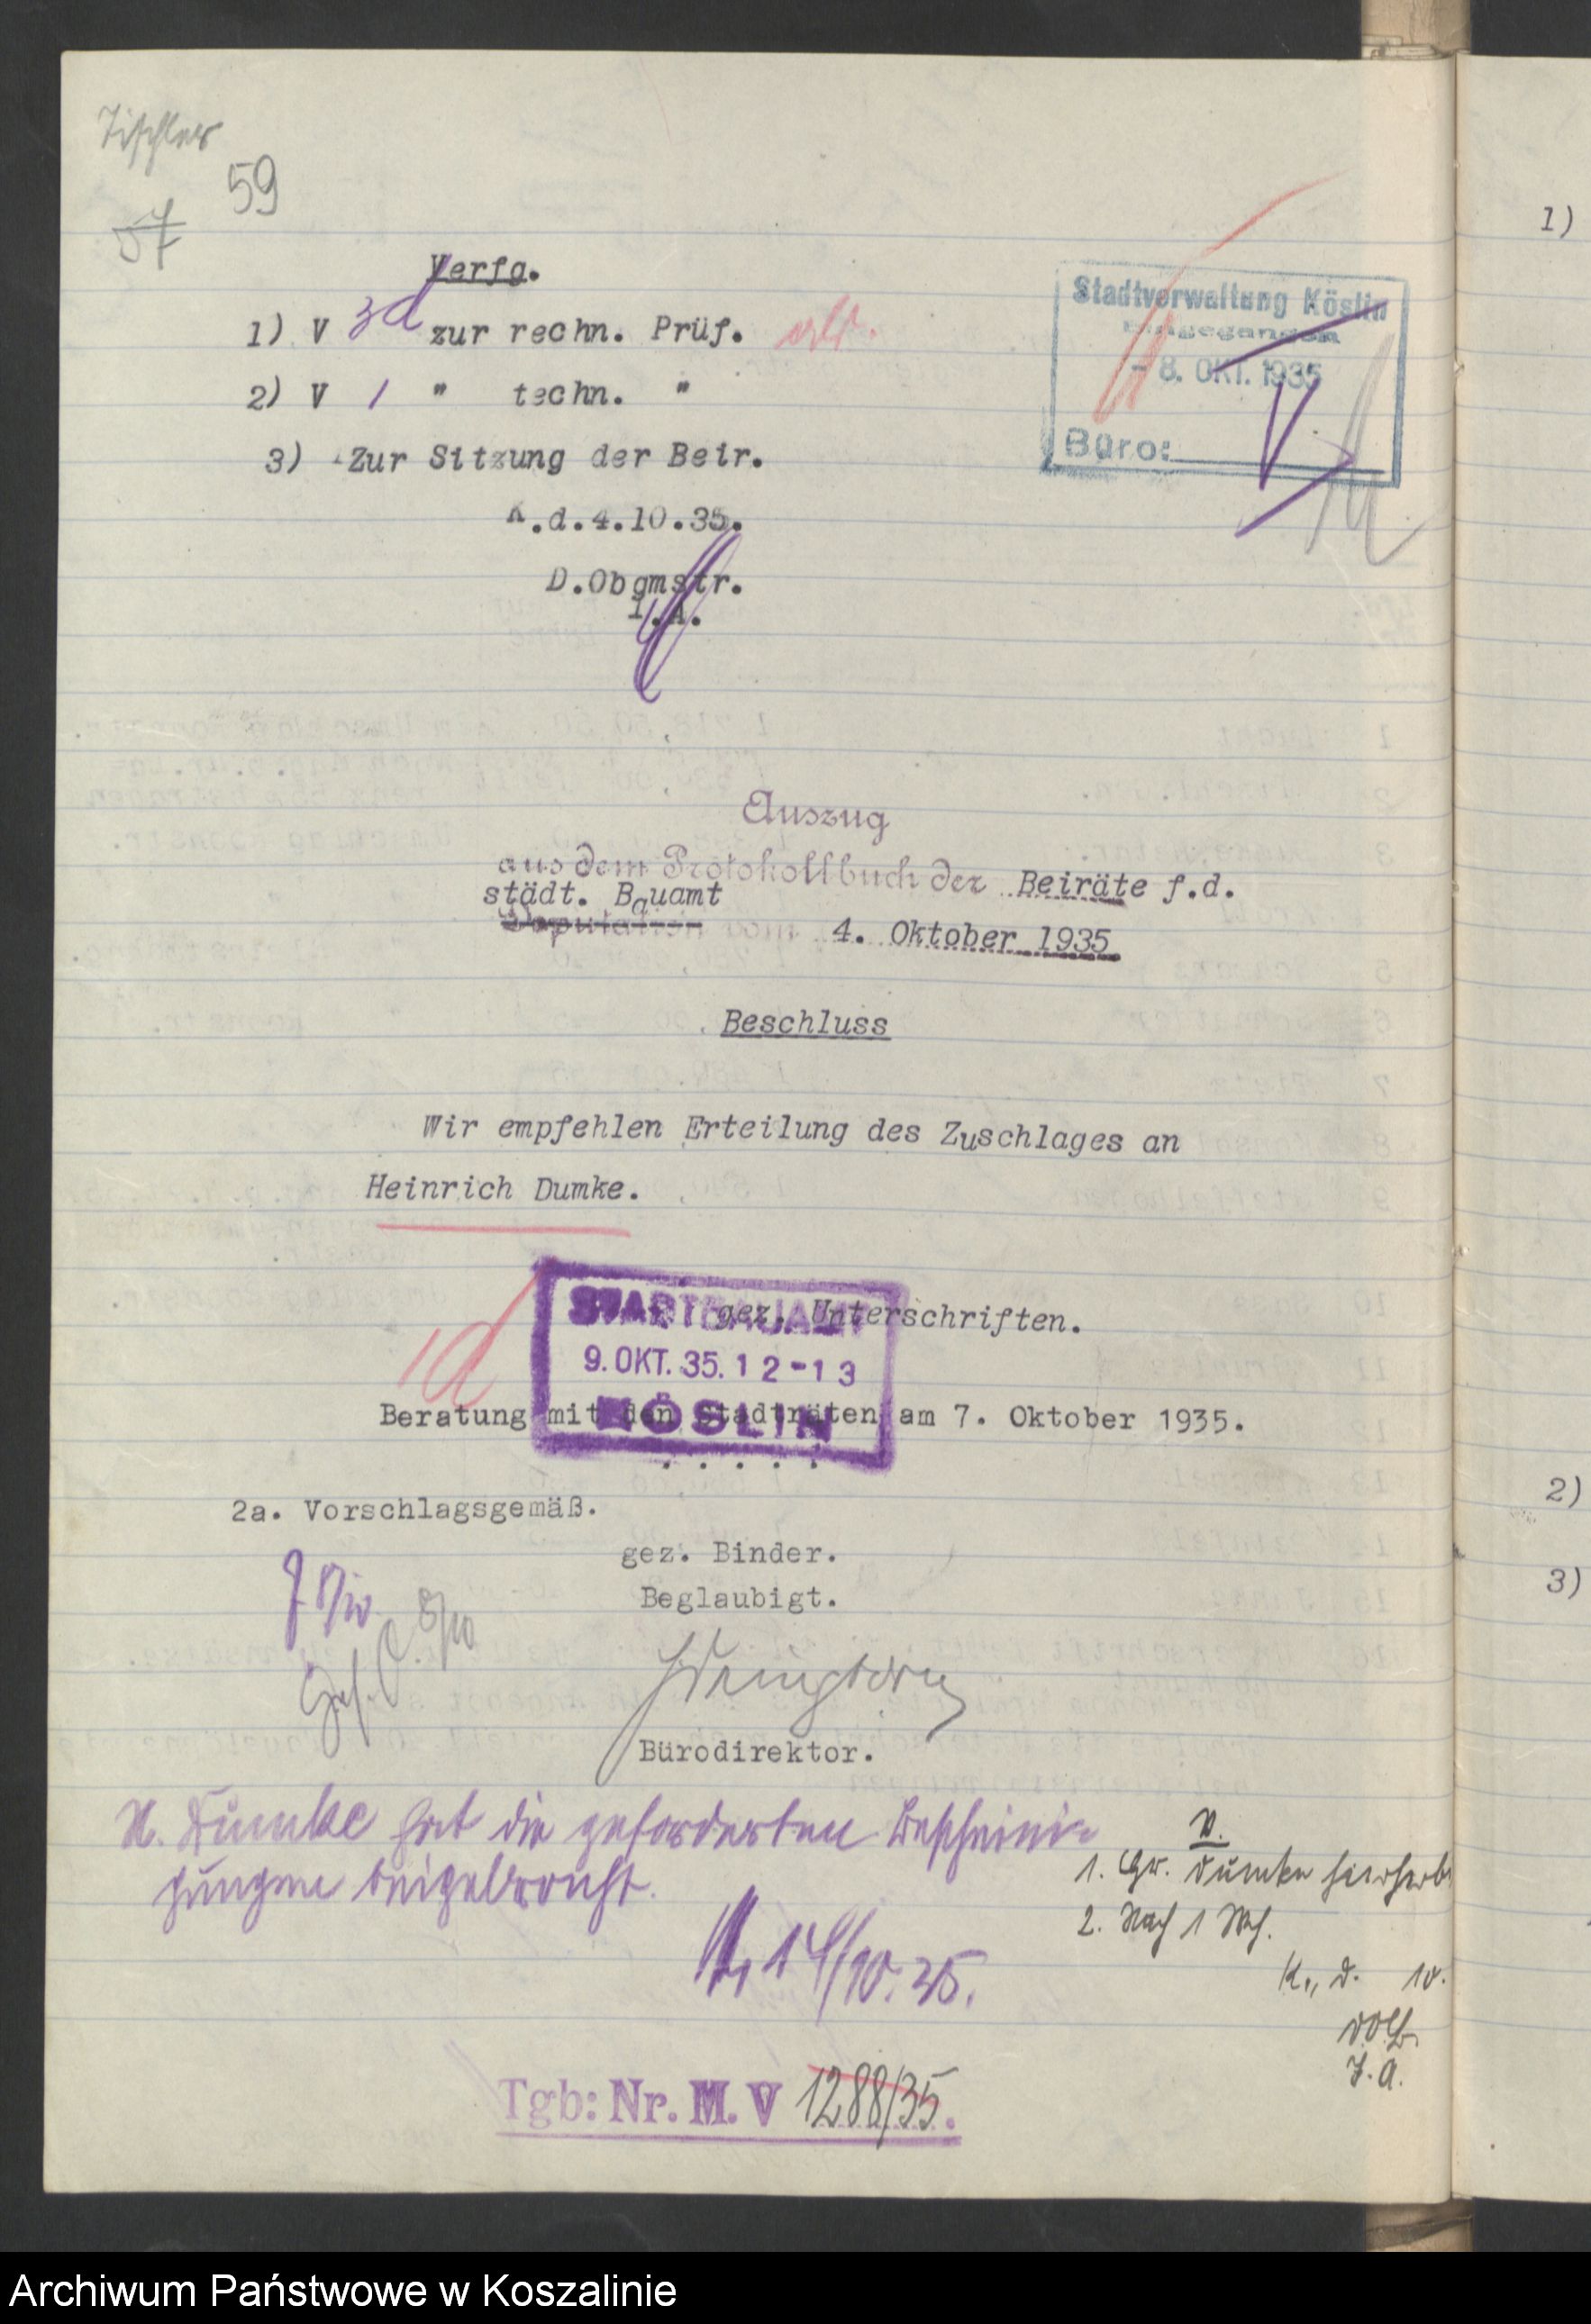 Tischler
59
57
Verfg.
1) V 3d zur rechn. Prüf.
2) V 1 " techn. "
3) Zur Sitzung der Beir.
K.d.4.10.35.
D.Obgmstr.
I.A.
Stadtverwaltung Köslin
Eingegangen
- 8. OKT. 1935
Büro:
V
Auszug
aus dem Protokollbuch der Beiräte f.d.
städt. Bauamt
Deputation vom 4. Oktober 1935
Beschluss
Wir empfehlen Erteilung des Zuschlages an
Heinrich Dumke.
gez. Unterschriften.
STADTBAUAMT
9. OKT. 35. 12-13
KÖSLIN
Beratung mit den Stadträten am 7. Oktober 1935.
. . . . .
2a. Vorschlagsgemäß.
gez. Binder.
Beglaubigt.
8/10
8/10
Bürodirektor.
H. Dumke hat die geforderten Bescheini-
gungen beigebracht.
14/10.35.
V.
1. Dumke hierherb.
2. Nach 1 Wch.
K., d. 10.
DOB
I.A.
Tgb: Nr. M. V 1288/35.
1)
2)
3)
Archiwum Państwowe w Koszalinie